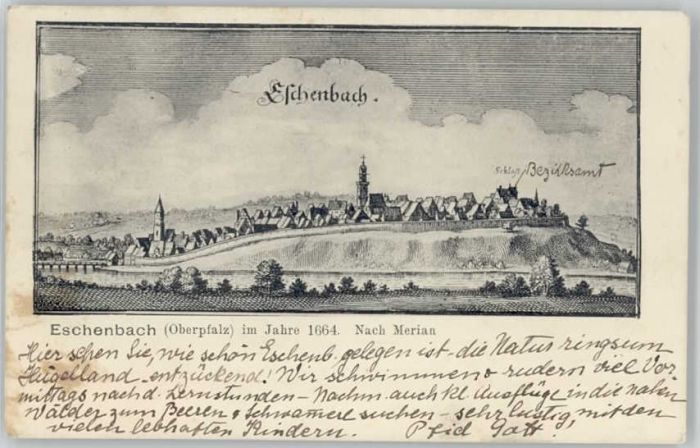 Eschenbach.
Schloß Bezirksamt
Eschenbach (Oberpfalz) im Jahre 1664. Nach Merian
Hier sehen Sie, wie schön Eschenb. gelegen ist - die Natur ringsum
Hügelland entzückend! Wir schwimmen & rudern viel Vor
mittags nach d. Lernstunden - Nachm. auch kl. Ausflüge in die nahen
Wälder zum Beeren & Schwamerl suchen - sehr lustig, mit den
vielen lebhaften Kindern.